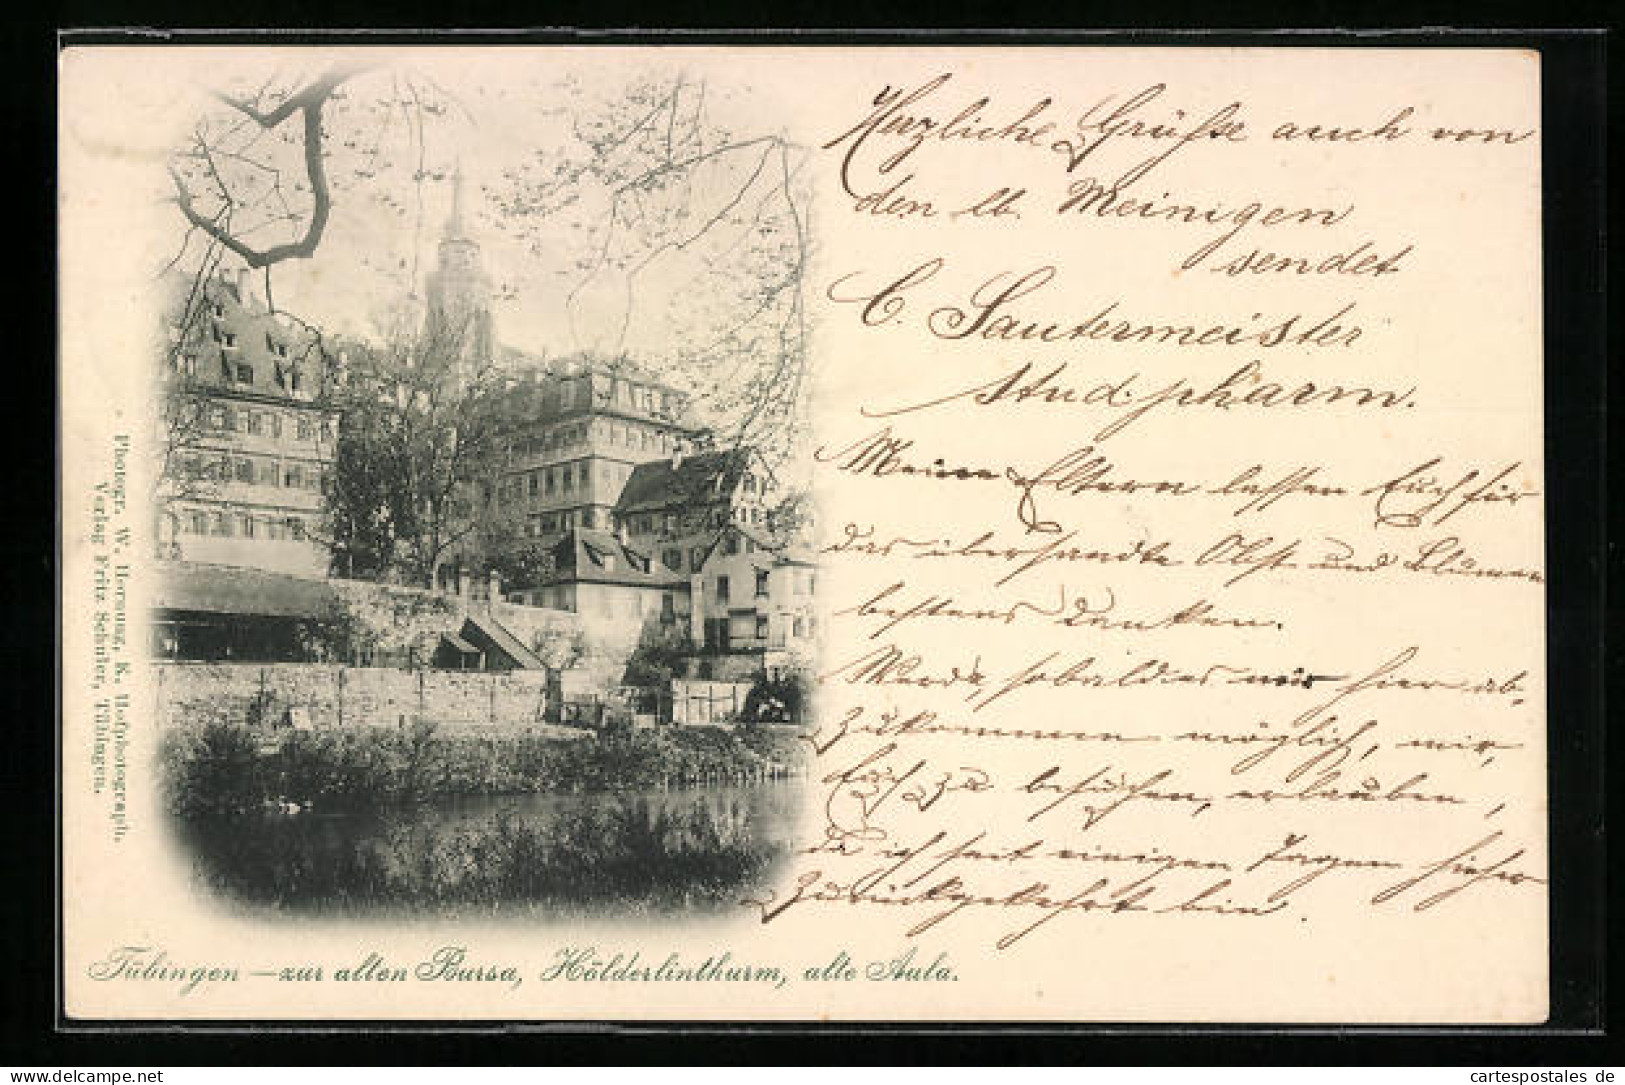 Herzliche Grüße auch von
den lb. Meinigen
sendet
C. Sautermeister
stud. pharm.
Meine Eltern lassen Euch für
das übersandte Obst und Blumen
bestens danken.
Werde, sobald es mir hier ab-
zukommen möglich, mir,
Euch zu besuchen, erlauben,
da ich seit einigen Tagen hieher
zurückgekehrt bin.
Photogr. W. Hornung, K. Hofphotograph.
Verlag Fritz Schuler, Tübingen.
Tübingen — zur alten Bursa, Hölderlinthurm, alte Aula.
Delcampe.net
cartespostales de